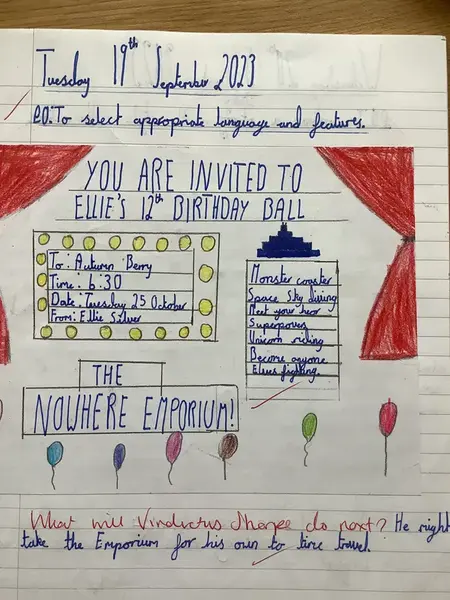 Tuesday 19th September 2023
L.O. To select appropriate language and features.
YOU ARE INVITED TO
ELLIE'S 12th BIRTHDAY BALL
To: Autumn Berry
Time: 6:30
Date: Tuesday 25 October
From: Ellie Silver
Monster coaster
Space Sky diving
Meet your hero
Superpowers
Unicorn riding
Become anyone
Elves fighting.
THE
NOWHERE EMPORIUM!
What will Vindictus Sharpe do next? He might
take the Emporium for his own to time travel.